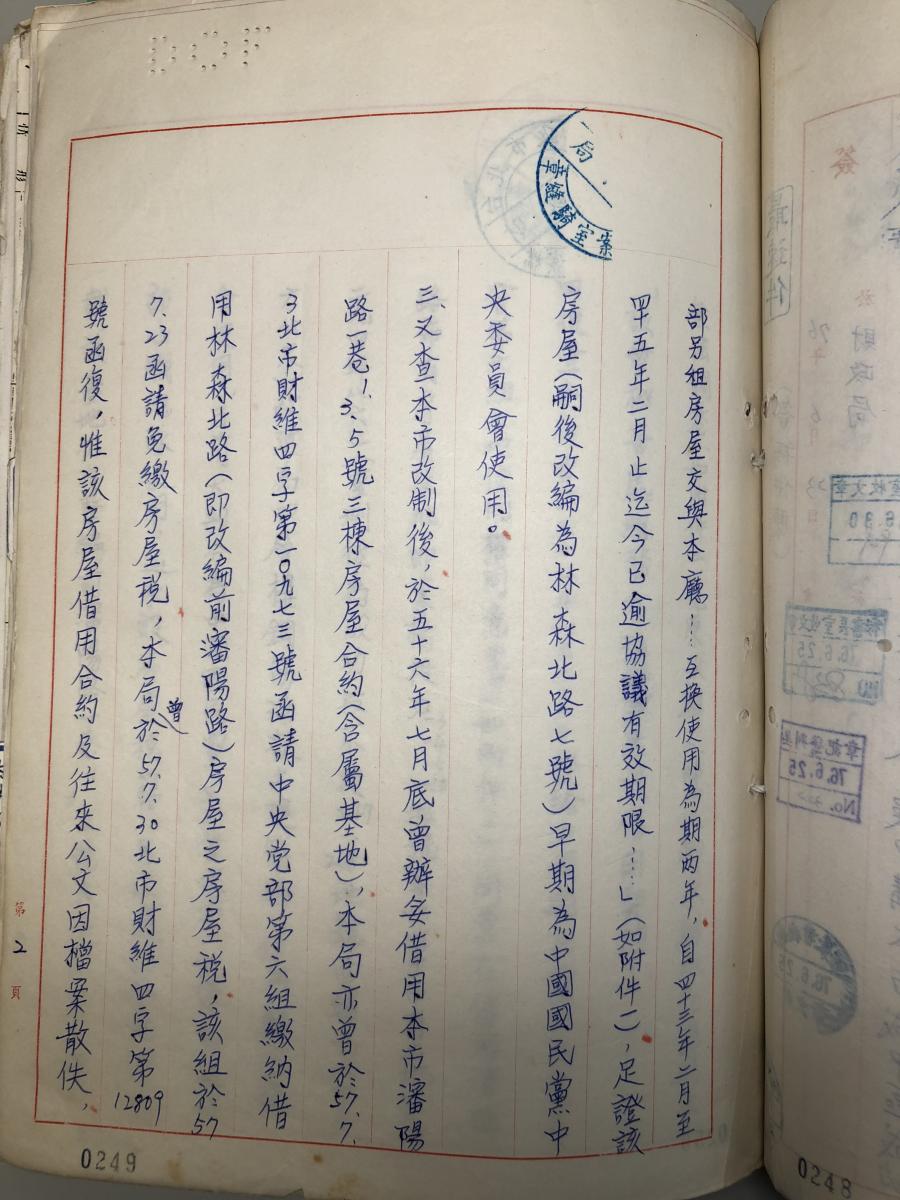 部另組房屋交與本廳……互換使用為期兩年，自四十三年二月至
四十五年二月止迄今已逾協議有效期限……」（如附件一），足證該
房屋（嗣後改編為林森北路七號）早期為中國國民黨中
央委員會使用。
三、又查本市改制後，於五十六年七月底曾辦妥借用本市瀋陽
路一巷1.3.5號三棟房屋合約（含屬基地），本局亦曾於57.7.
3北市財維四字第一〇九七三號函請中央党部第六組繳納借
用林森北路（即改編前瀋陽路）房屋之房屋税，該組於57
7.23函請免繳房屋税，本局曾於57.7.30北市財維四字第12809
號函復，惟該房屋借用合約及往來公文因檔案散佚，
局
案室騎縫章
第2頁
0249
簽
於財政局
76年6月23日
最速件
76.6.25
76.6.25
No.
76.6.25
0248